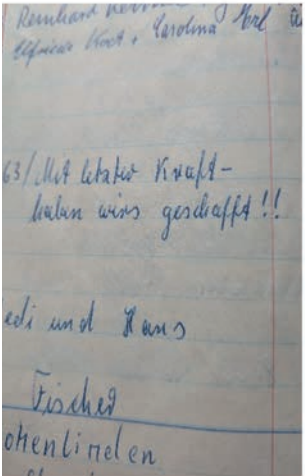 Reinhard
Elfriede Voet + Carolina Erl
63/Mit letzter Kraft-
haben wirs geschafft!!
edi und Hans
Fischer
ohenlinden